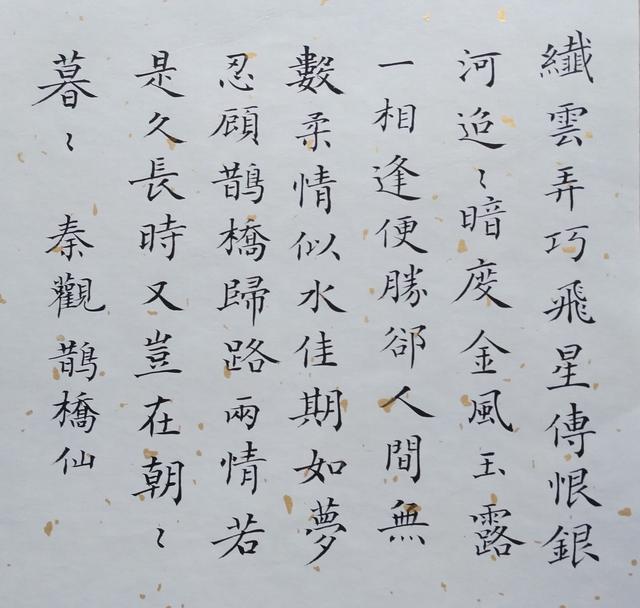 纖雲弄巧飛星傳恨銀
河迢〻暗度金風玉露
一相逢便勝卻人間無
數柔情似水佳期如夢
忍顧鵲橋歸路兩情若
是久長時又豈在朝〻
暮〻 秦觀鵲橋仙